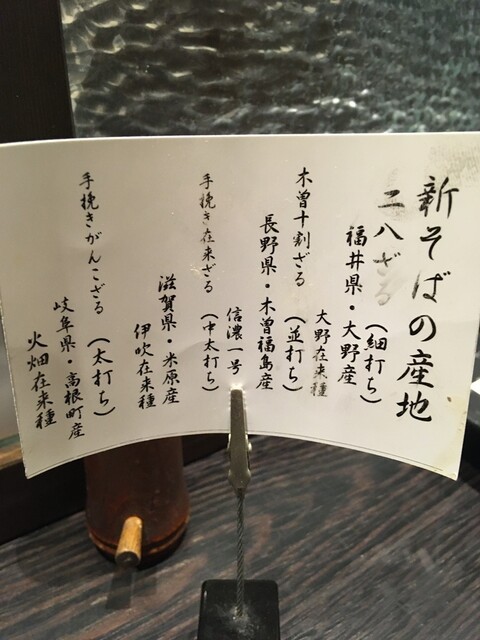 新そばの産地
二八ざる（細打ち）
福井県・大野産
大野在来種
木曽十割ざる（並打ち）
長野県・木曽福島産
信濃一号
手挽き在来ざる（中太打ち）
滋賀県・米原産
伊吹在来種
手挽きがんこざる（太打ち）
岐阜県・高根町産
火畑在来種